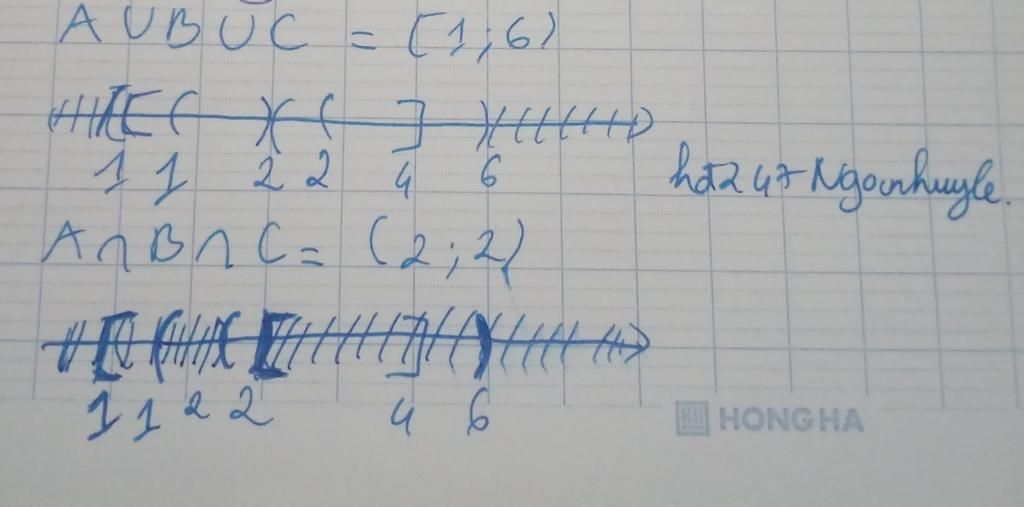 A ∪ B ∪ C = [1; 6)
1 1 2 2 4 6
hd247-Ngocnhuyle.
A ∩ B ∩ C = (2; 2)
1 1 2 2 4 6
HONG HA